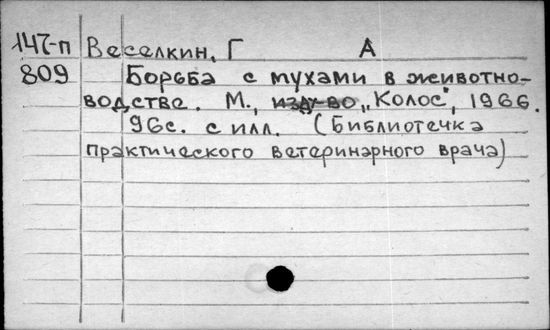 147-п Веселкин, Г А
809 Борьба с мухами в животно-
водстве. М., изд-во „Колос", 1966.
96с. с илл. (Библиотечка
практического ветеринарного врача)